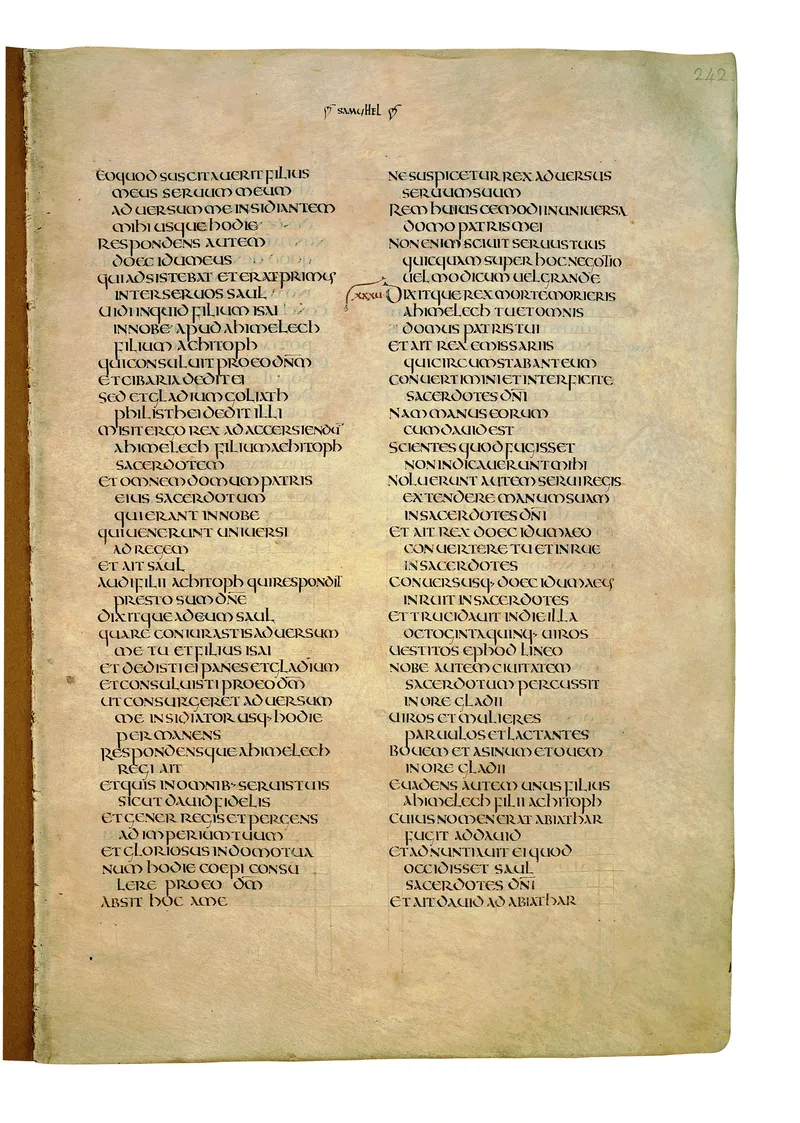 242
SAMUHEL
EOQUOD SUSCITAUERIT FILIUS
MEUS SERUUM MEUM
ADUERSUM ME INSIDIANTEM
MIHI USQUE HODIE
RESPONDENS AUTEM
DOEC IDUMEUS
QUI ADSISTEBAT ET ERAT PRIMUS
INTER SERUOS SAUL
UIDI INQUID FILIUM ISAI
IN NOBE APUD AHIMELECH
FILIUM ACHITOPH
QUI CONSULUIT PRO EO DN̄M
ET CIBARIA DEDIT EI
SED ET GLADIUM GOLIATH
PHILISTHEI DEDIT ILLI
MISIT ERGO REX AD ACCERSIENDŪ
AHIMELECH FILIUM ACHITOPH
SACERDOTEM
ET OMNEM DOMUM PATRIS
EIUS SACERDOTUM
QUI ERANT IN NOBE
QUI UENERUNT UNIUERSI
AD REGEM
ET AIT SAUL
AUDI FILII ACHITOPH QUI RESPONDIT
PRESTO SUM DN̄E
DIXITQUE AD EUM SAUL
QUARE CONIURASTIS ADUERSUM
ME TU ET FILIUS ISAI
ET DEDISTI EI PANES ET GLADIUM
ET CONSULUISTI PRO EO DM̄
UT CONSURGERET ADUERSUM
ME INSIDIATOR USQ· HODIE
PERMANENS
RESPONDENSQUE AHIMELECH
REGI AIT
ET QUIS IN OMNIB· SERUIS TUIS
SICUT DAUID FIDELIS
ET GENER REGIS ET PERGENS
AD IMPERIUM TUUM
ET GLORIOSUS IN DOMO TUA
NUM HODIE COEPI CONSU
LERE PRO EO DM̄
ABSIT HOC A ME
NE SUSPICETUR REX ADUERSUS
SERUUM SUUM
REM HUIUSCEMODI IN UNIUERSA
DOMO PATRIS MEI
NON ENIM SCIUIT SERUUS TUUS
QUICQUAM SUPER HOC NEGOTIO
UEL MODICUM UEL GRANDE
XXXII DIXITQUE REX MORTE MORIERIS
AHIMELECH TU ET OMNIS
DOMUS PATRIS TUI
ET AIT REX EMISSARIIS
QUI CIRCUMSTABANT EUM
CONUERTIMINI ET INTERFICITE
SACERDOTES DN̄I
NAM MANUS EORUM
CUM DAUID EST
SCIENTES QUOD FUGISSET
NON INDICAUERUNT MIHI
NOLUERUNT AUTEM SERUI REGIS
EXTENDERE MANUM SUAM
IN SACERDOTES DN̄I
ET AIT REX DOEC IDUMAEO
CONUERTERE TU ET INRUE
IN SACERDOTES
CONUERSUSQ· DOEC IDUMAEUS
INRUIT IN SACERDOTES
ET TRUCIDAUIT IN DIE ILLA
OCTOGINTAQUINQ· UIROS
UESTITOS EPHOD LINEO
NOBE AUTEM CIUITATEM
SACERDOTUM PERCUSSIT
IN ORE GLADII
UIROS ET MULIERES
PARUULOS ET LACTANTES
BOUEM ET ASINUM ET OUEM
IN ORE GLADII
EUADENS AUTEM UNUS FILIUS
AHIMELECH FILII ACHITOPH
CUIUS NOMEN ERAT ABIATHAR
FUGIT AD DAUID
ET ADNUNTIAUIT EI QUOD
OCCIDISSET SAUL
SACERDOTES DN̄I
ET AIT DAUID AD ABIATHAR